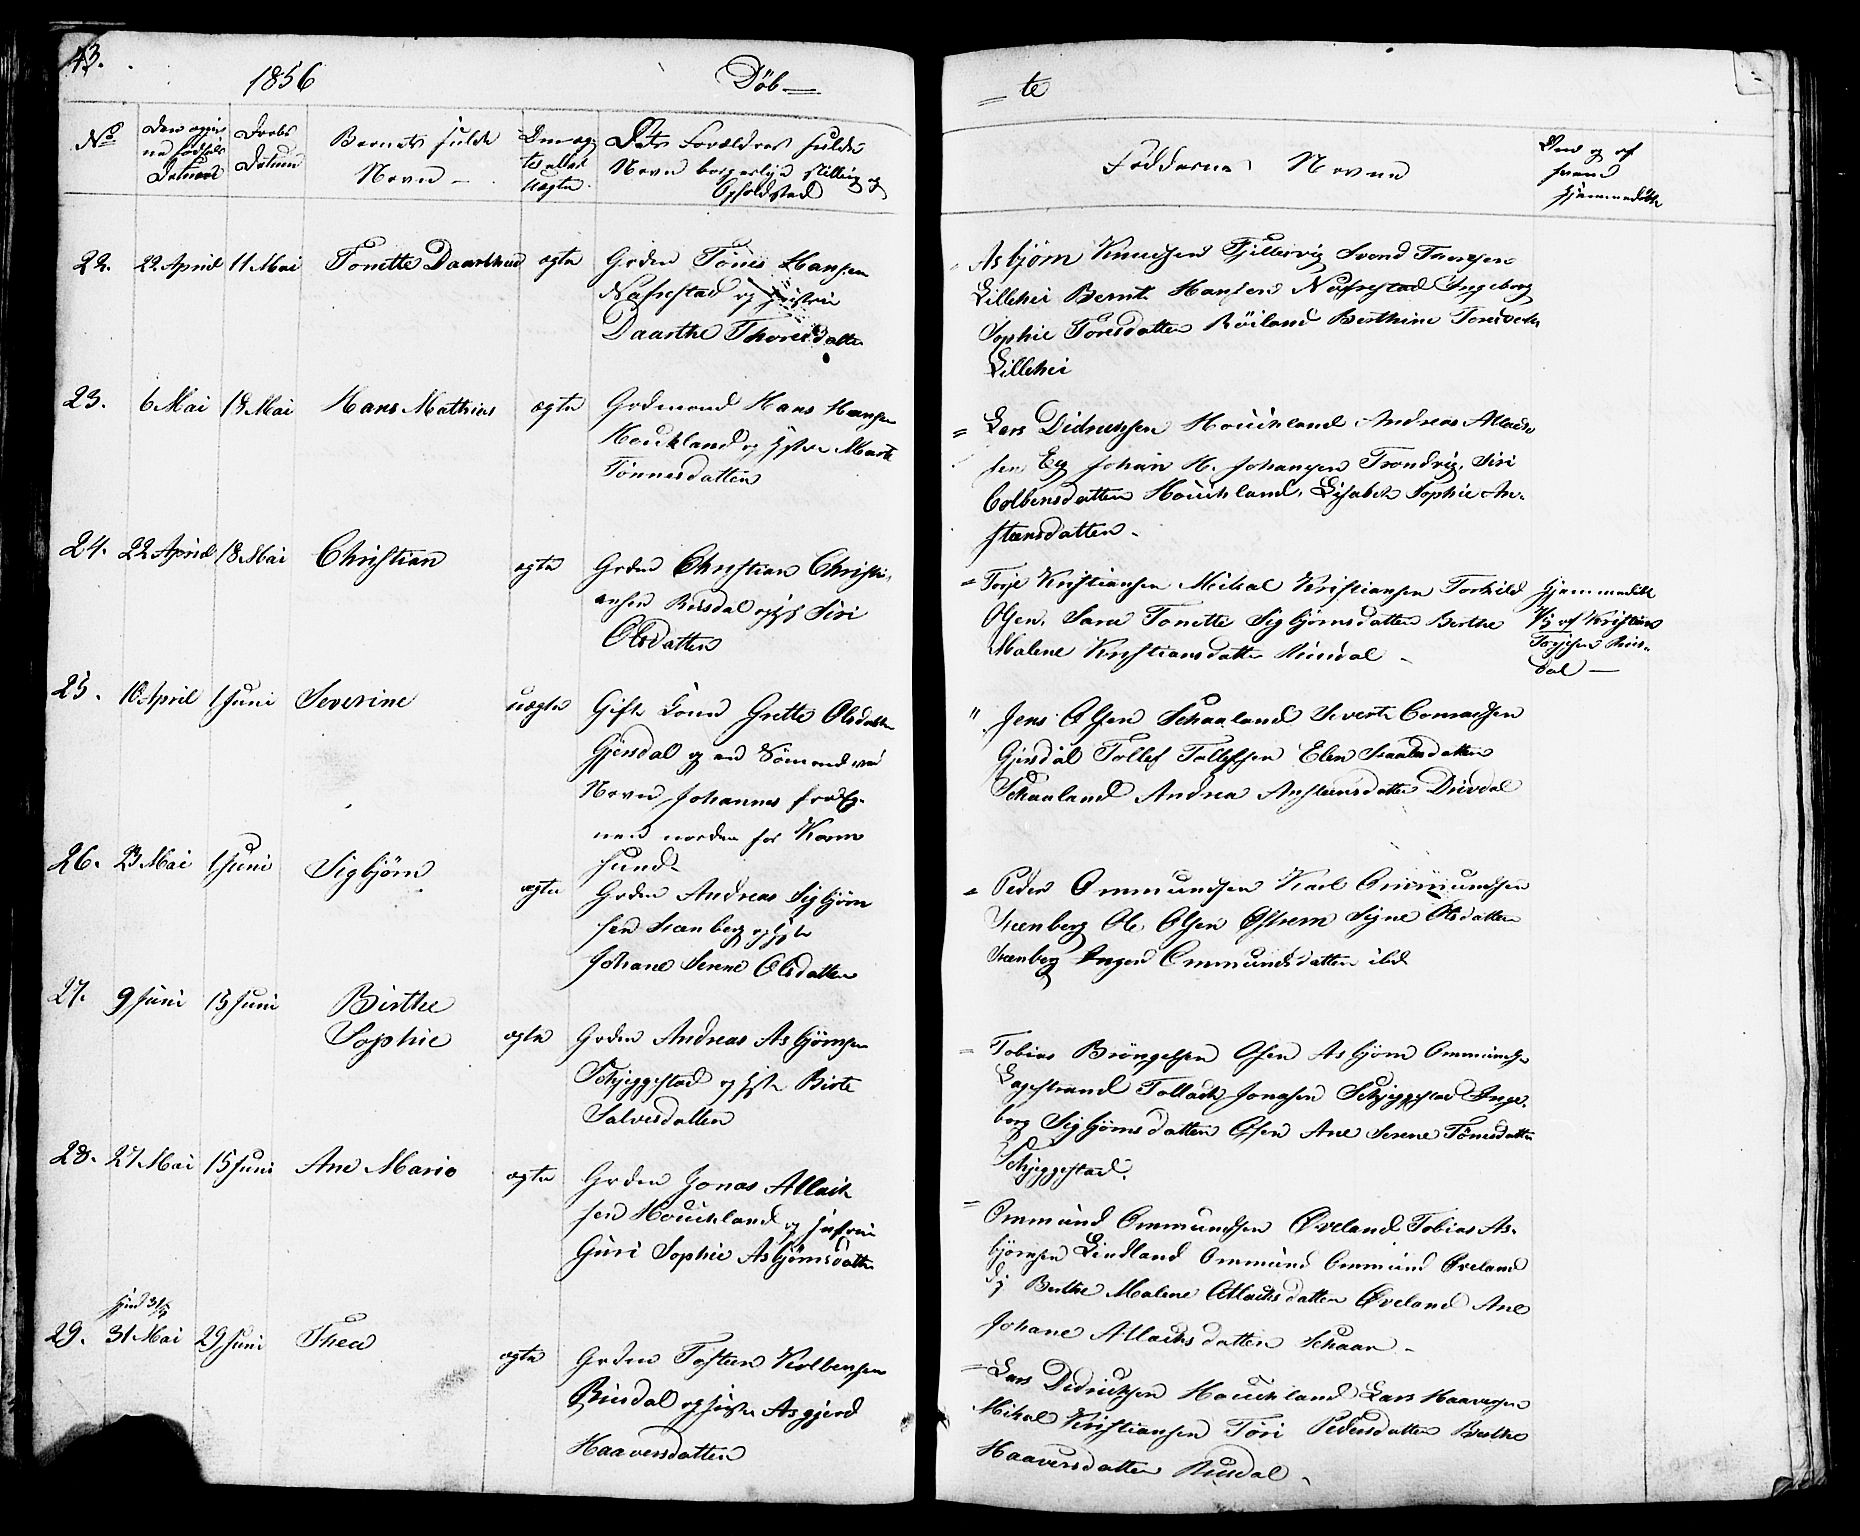 43.
1856
Döb—
= te
No
Den opgivne Fødsels Datum
Daabs Datum
Barnets fulde Navn —
Om ægte eller uægte.
Dets Forældres fulde Navn borgerlige Stilling og Opholdsted
Faddernes Navne
Hven og af hvem hjemmedöbt
22. 22 April 11 Mai Tonette Daarthea ægte
Grdm Tönes Hansen
Nafrestad og Hustru
Daarthe Thoresdatter
Asbjörn Knudsen Fjellsvig Svend Thoresen
Lillehei Bernt Hansen Nafrestad Ingeborg
Sophie Töresdatter Röiland Berthine Toresdatter
Lillehei
23. 6 Mai 18 Mai Hans Mathias ægte
Grdmand Hans Hansen
Houkland og Hstr Marte
Tönnesdatter
= Lars Didriksen Houkland Andreas Atlak
sen Eg Johan H. Johansen Trondvig, Siri
Colbensdatter Houkland, Lisabeth Sophie An-
stensdatter -
24. 22 April 18 Mai Christian ægte
Grdm Christian Christi-
ansen Rusdal og H Siri
Olsdatter
= Torje Kristiansen Mikal Kristiansen Torkild
Olsen, Sara Tonette Sigbjörnsdatter Berthe
Malene Kristiansdatter Rusdal -
Hjemmedöbt
af Kristian
Torjesen Rus-
dal —
25. 10 April 1 Juni Severine uægte
Gift Kone Grette Olsdatter
Gjersdal og en Sömand ved
Navn Johannes fra Eg-
nen norden for Karm
sund-
" Jens Olsen Skaaland Sivert Conradsen
Gjersdal Tollef Tollefsen Elen Isaaksdatter
Skaaland Andrea Anstensdatter Düvdal
26. 23 Mai 1 Juni Sigbjörn ægte
Grdm Andreas Sigbjörn
sen Steenberg og Hst
Johane Serene Olsdatter
= Peder Ommundsen Karl Ommundsen
Steenberg Ole Olsen Østrem Signe Olsdatter
Steenberg Inger Ommundsdatter ibd
27. 9 Juni 15 Juni Birthe
Sophie ægte
Grdm Andreas Asbjörnsen
Skjeggestad og Hst Birte
Salvesdatter
= Tobias Bröngelsen Osen Asbjörn Ommundsen
Lagestrand Tollak Jonasen Skjeggestad Inge-
borg Sigbjörnsdatter Osen Ane Serene Tönesdatter
Skjeggestad.
28. 27 Mai 15 Juni Ane Marie ægte
Grdm Jonas Atlak
sen Houkland og Hustru
Guri Sophie Asbjörnsdatter
= Ommund Ommundsen Øveland Tobias As-
björnsen Lindland Ommund Ommund Øveland
dj Berthe Malene Atlaksdatter Øveland Ane
Johane Atlaksdatter Skaar -
29. 31 Mai 29 Juni Thea ægte
Grdm Tosteen Kolbensen
Rusdal og Hustr Asgjerd
Haaversdatter
= Lars Didriksen Houkland Lars Haaversen
Mikal Kristiansen Tori Pedersdatter Berthe
Haaversdatter Rusdal -